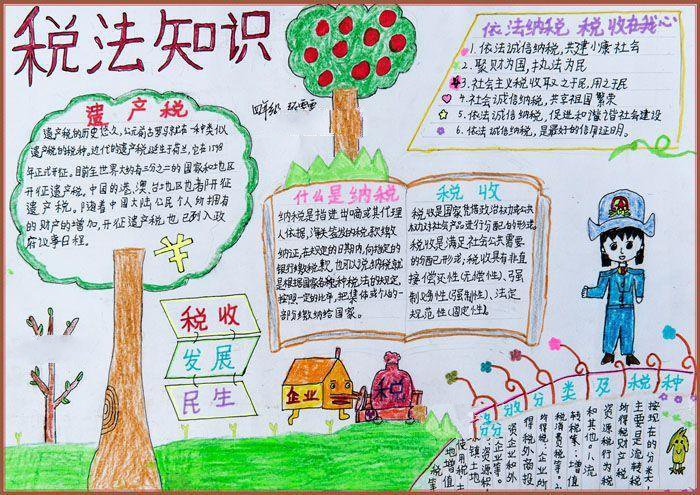 税法知识
依法纳税 税收在我心
1. 依法诚信纳税,共建小康社会
2. 聚财为国,执法为民
3. 社会主义税收取之于民,用之于民
4. 社会诚信纳税,共享祖国繁荣
5. 依法诚信纳税,促进和谐社会建设
6. 依法诚信纳税,是最好的信用证明。
遗产税
遗产税的历史悠久,公元前古罗马就有一种类似
遗产税的税种。近代的遗产税诞生于荷兰,它在1598
年正式开征。目前世界大约有三分之二的国家和地区
开征遗产税。中国的港、澳、台地区也者阝开征
遗产税。随着中国大陆公民个人的拥有
的财产的增加,开征遗产税也已列入政
府议事日程。
什么是纳税
纳税是指进出口商或其代理
人依据海关签发的税款缴
纳证,在规定的日期内,向指定的
银行缴纳税款,也可以说纳税就
是根据国家各种税法的规定,
按照一定的比率,把集体或个人的一
部分缴纳给国家。
税收
税收是国家凭借政治权力或公共
权力对社会产品进行分配的形式。
税收是满足社会公共需要
的分配形式;税收具有非直
接偿还性(无偿性)、强
制义务性(强制性)、法定
规范性(固定性)。
税收
发展
民生
企业
税
分类及税种
按现在的分类,
主要是流转税
所得税财产税
资源税行为税
和其他。